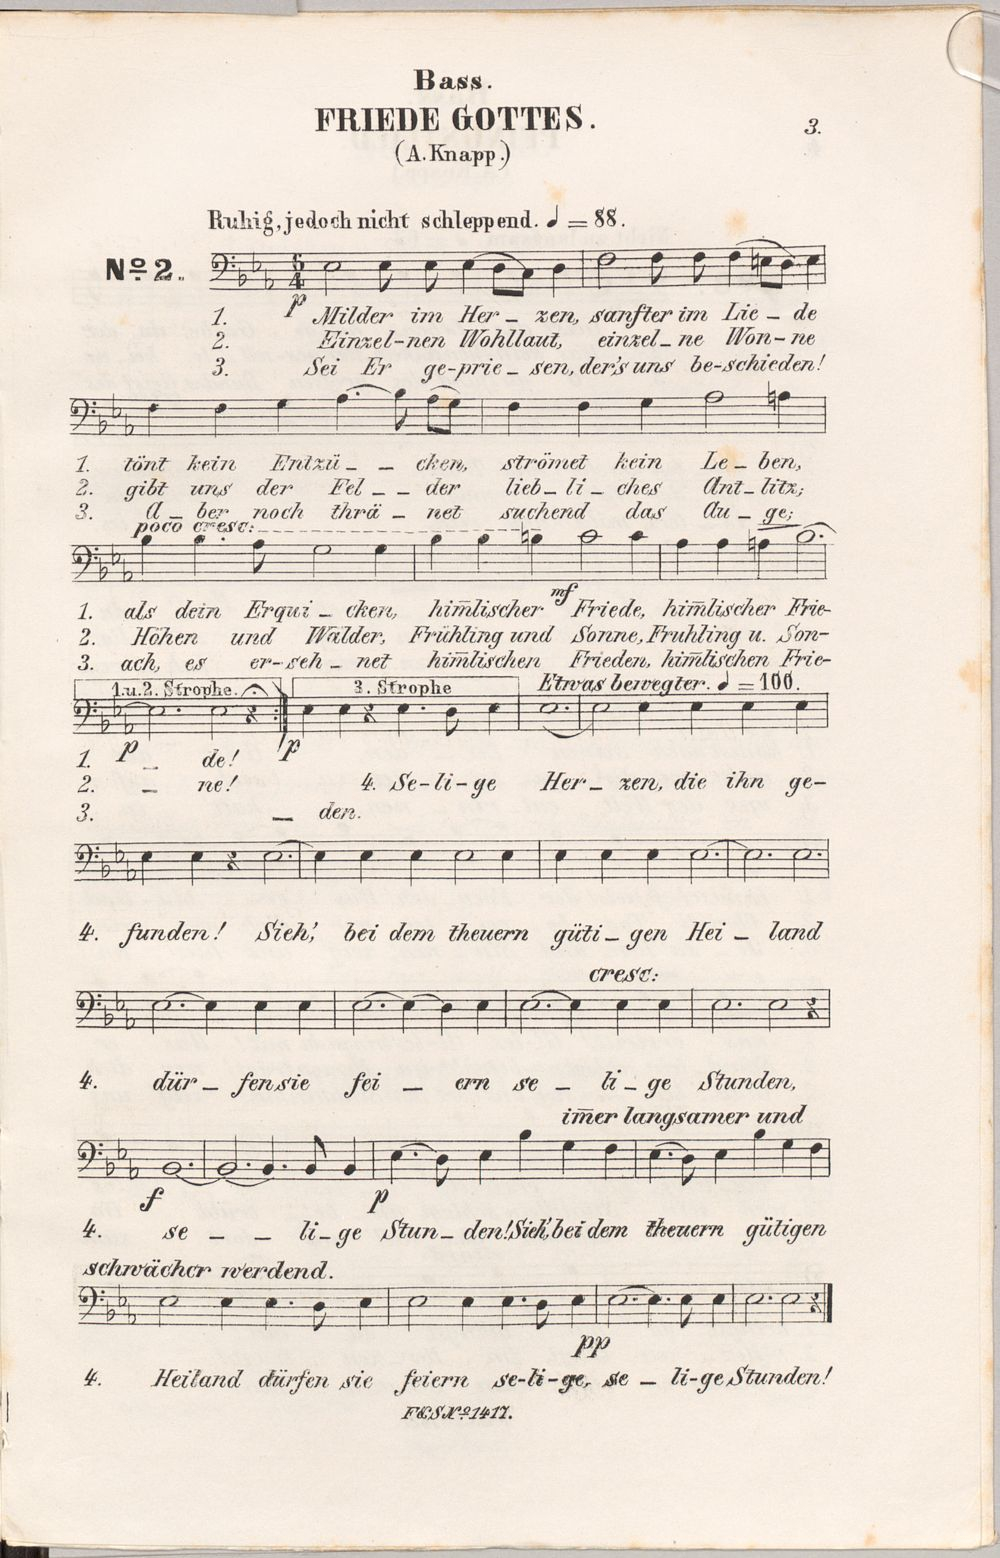 Bass.
FRIEDE GOTTES.
3.
(A. Knapp.)
Ruhig, jedoch nicht schleppend. ♩ = 88.
Nº 2.
5
4
p
1. Milder im Her – zen, sanfter im Lie – de
2. Einzel-nen Wohllaut, einzel – ne Won – ne
3. Sei Er ge-prie – sen, der's uns be-schieden!
1. tönt kein Entzü – – cken, strömet kein Le – ben,
2. gibt uns der Fel – – der lieb – li – ches Ant – litz;
3. A – ber noch thrä – net suchend das Au – ge;
poco cresc:
mf
1. als dein Erqui – cken, him̄lischer Friede, him̄lischer Frie-
2. Höhen und Wälder, Frühling und Sonne, Fruhling u. Son-
3. ach, es er – seh – net him̄lischen Frieden, him̄lischen Frie-
1. u. 2. Strophe. 3. Strophe Etwas bewegter. ♩ = 100.
p p
1. – de!
2. – ne! 4. Se-li-ge Her – zen, die ihn ge-
3. – den.
4. funden! Sieh', bei dem theuern güti – gen Hei – land
cresc:
4. dür – fen sie fei – ern se – li – ge Stunden,
im̄er langsamer und
f p
4. se – – li – ge Stun – den! Sieh', bei dem theuern gütigen
schwächer werdend.
pp
4. Heiland dürfen sie feiern se-li-ge, se – li-ge Stunden!
F&S Nº 1417.